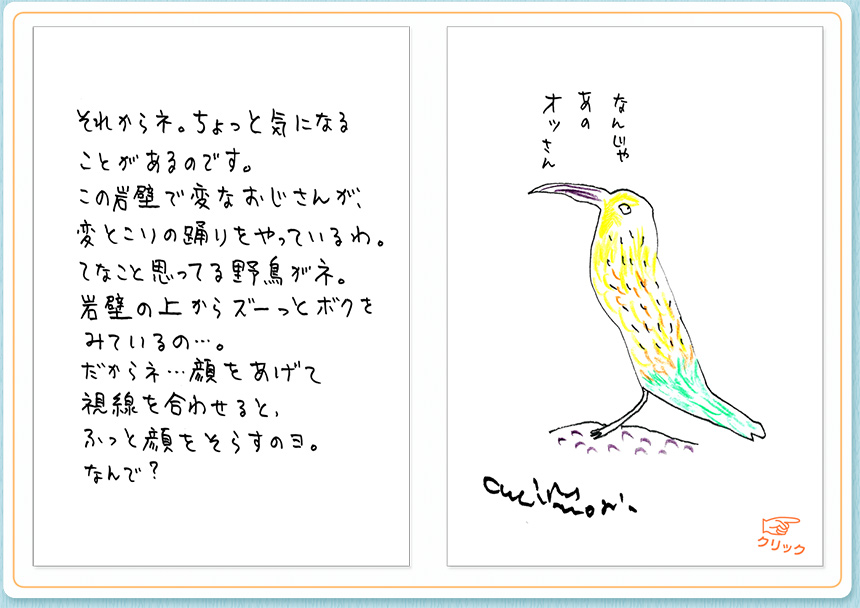 それからネ。ちょっと気になる
ことがあるのです。
この岩壁で変なおじさんが、
変とこりの踊りをやっているわ。
てなこと思ってる野鳥がネ。
岩壁の上からズーっとボクを
みているの…。
だからネ…顔をあげて
視線を合わせると、
ふっと顔をそらすのヨ。
なんで?
なんじゃ
あの
オッさん
クリック